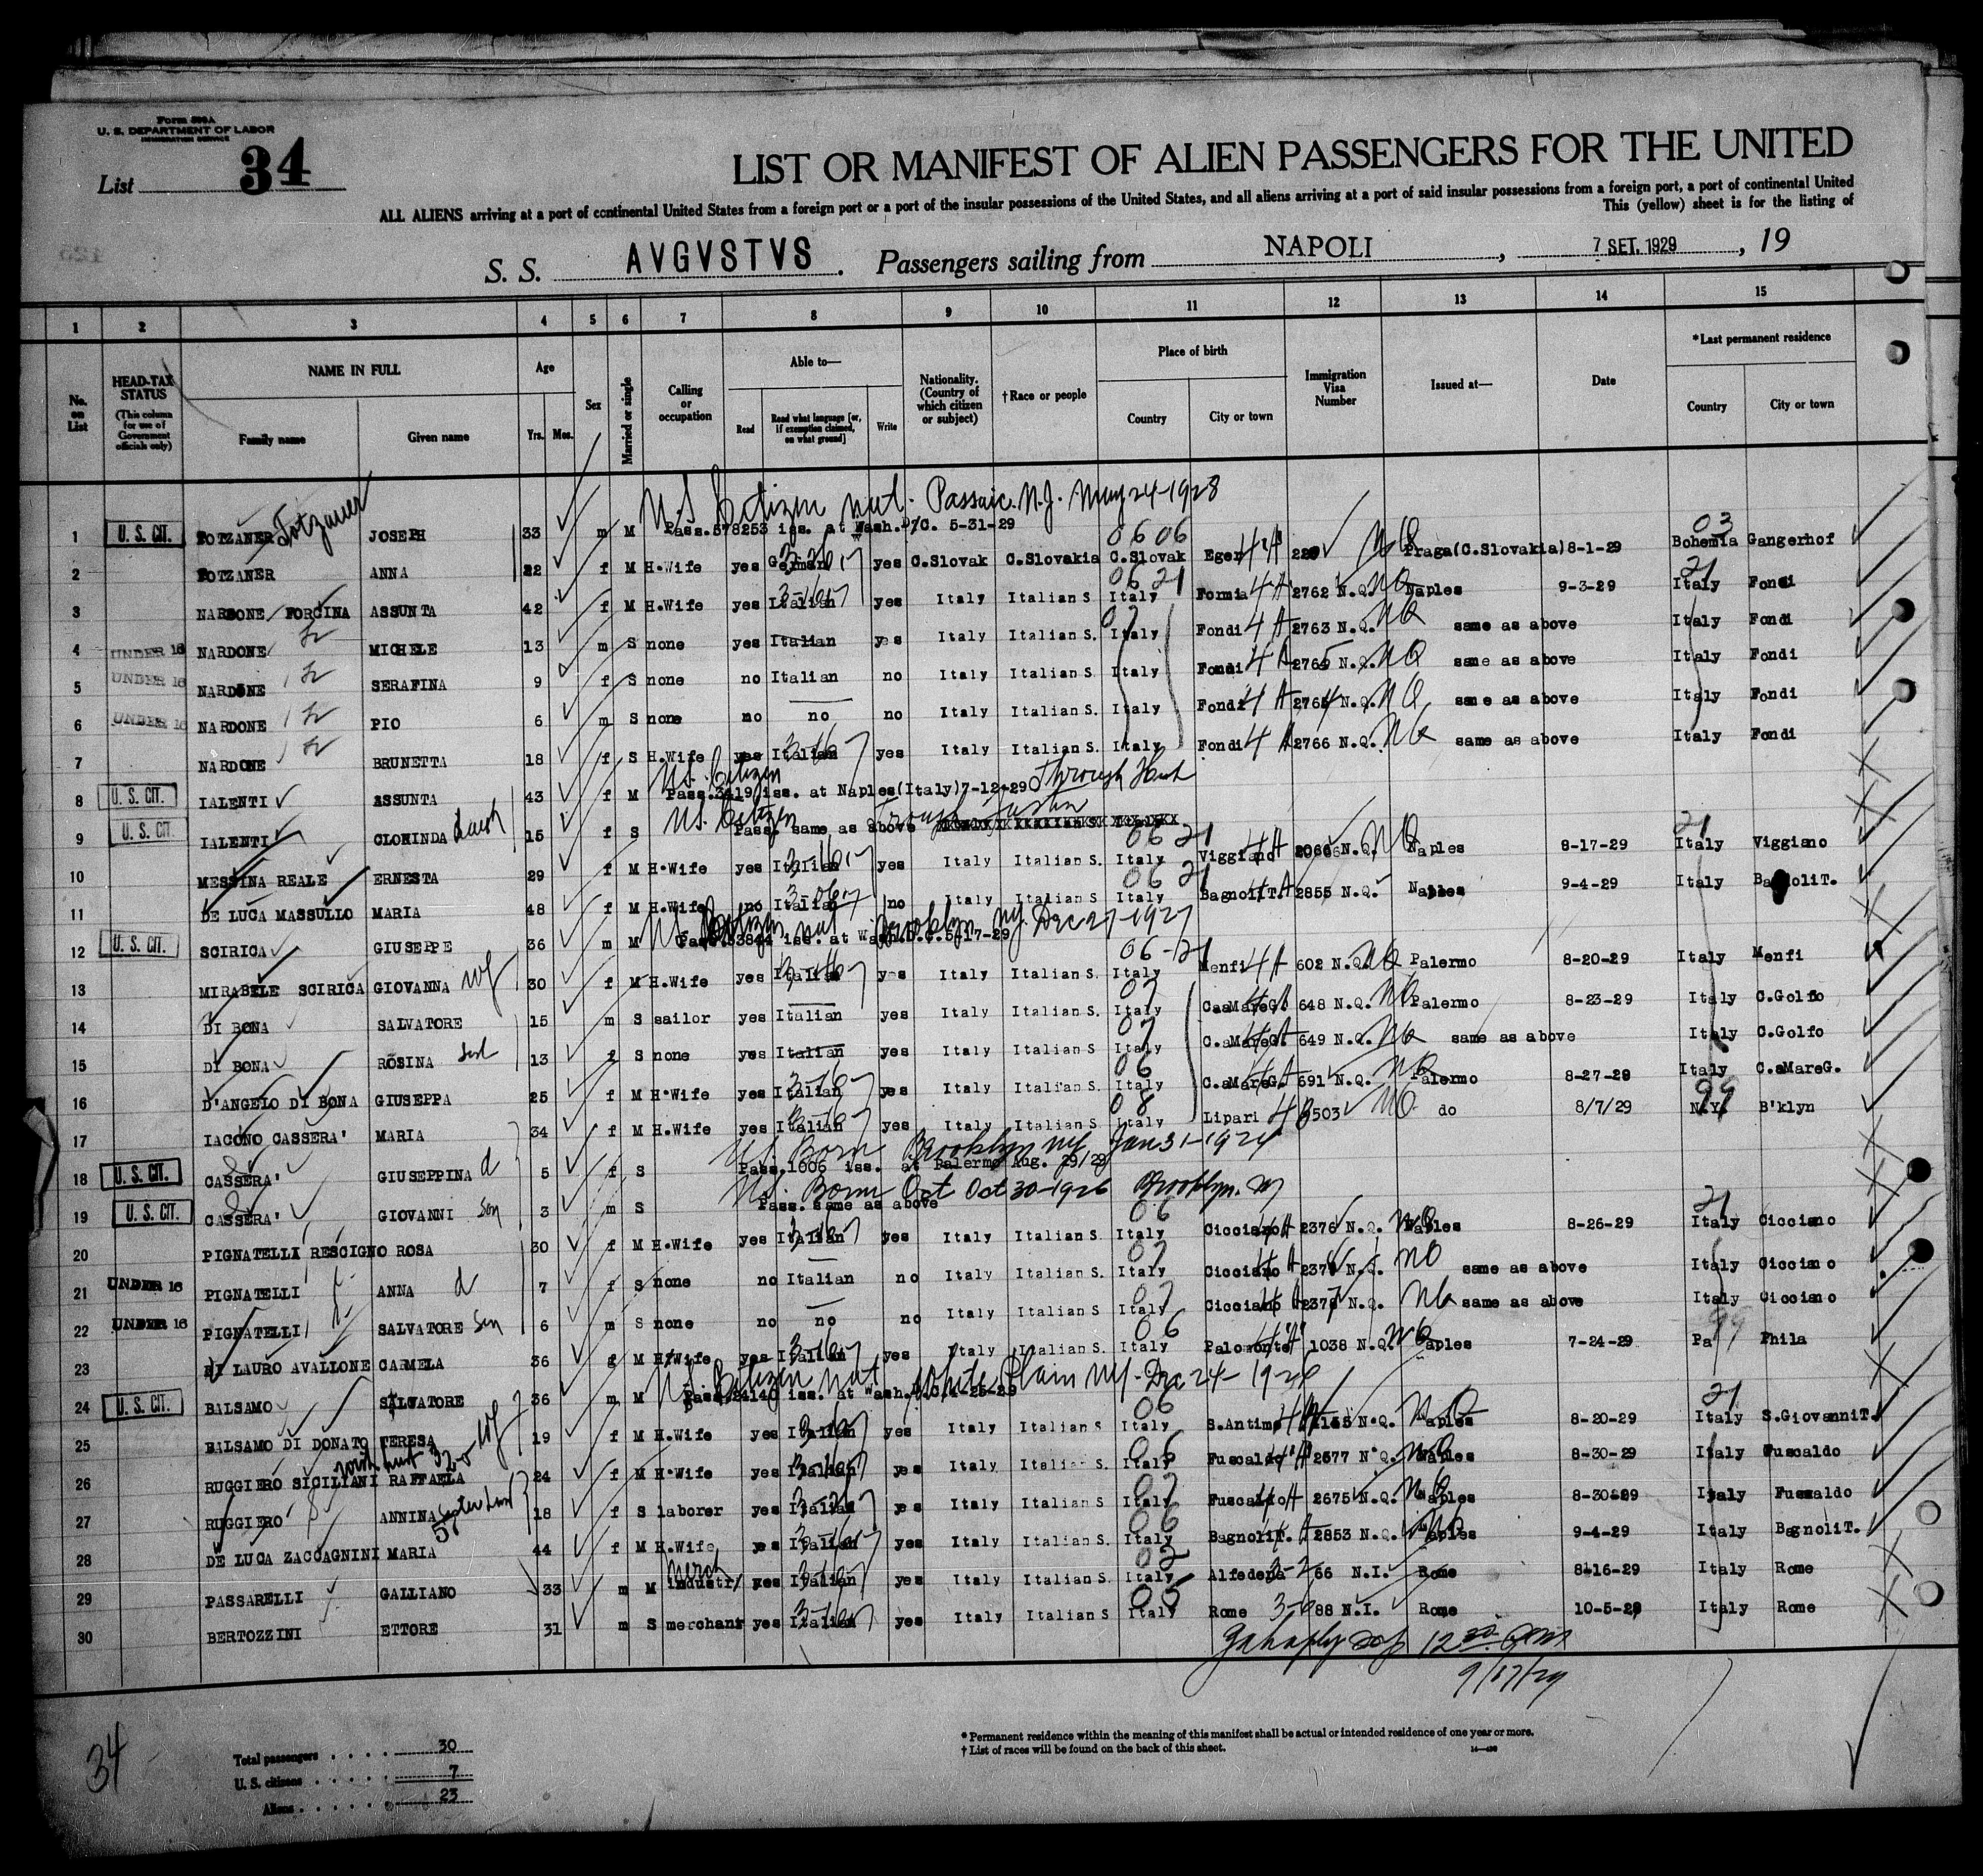 Form 500A
U. S. DEPARTMENT OF LABOR
IMMIGRATION SERVICE
List 34
LIST OR MANIFEST OF ALIEN PASSENGERS FOR THE UNITED
ALL ALIENS arriving at a port of continental United States from a foreign port or a port of the insular possessions of the United States, and all aliens arriving at a port of said insular possessions from a foreign port, a port of continental United
This (yellow) sheet is for the listing of
S. S. AVGVSTVS . Passengers sailing from NAPOLI , 7 SET. 1929 , 19
1 2 3 4 5 6 7 8 9 10 11 12 13 14 15
No. on List
HEAD-TAX STATUS (This column for use of Government officials only)
NAME IN FULL Family name Given name
Age Yrs. Mos.
Sex
Married or single
Calling or occupation
Able to— Read Read what language [or, if exemption claimed, on what ground] Write
Nationality. (Country of which citizen or subject)
†Race or people
Place of birth Country City or town
Immigration Visa Number
Issued at—
Date
*Last permanent residence Country City or town
U.S. Citizen nat. Passaic N.J. May 24-1928
1 U. S. CIT. TOTZANER Totzauer JOSEPH 33 m M Pass.578253 iss. at Wash.D/C. 5-31-29
2 TOTZANER ANNA 22 f M H.Wife yes German yes C.Slovak C.Slovakia C.Slovak Eger Praga(C.Slovakia) 8-1-29 Bohemia Gangerhof
3 NARDONE FORCINA ASSUNTA 42 f M H.Wife yes Italian yes Italy Italian S. Italy Formia 2762 N.Q. Naples 9-3-29 Italy Fondi
4 UNDER 16 NARDONE MICHELE 13 m S none yes Italian yes Italy Italian S. Italy Fondi 2763 N.Q. same as above Italy Fondi
5 UNDER 16 NARDONE SERAFINA 9 f S none no Italian no Italy Italian S. Italy Fondi N.Q. same as above Italy Fondi
6 UNDER 16 NARDONE PIO 6 m S none no no no Italy Italian S. Italy Fondi N.Q. same as above Italy Fondi
7 NARDONE BRUNETTA 18 f S H.Wife yes Italian yes Italy Italian S. Italy Fondi 2766 N.Q. same as above Italy Fondi
U.S. Citizen Through Husb
8 U. S. CIT. IALENTI ASSUNTA 43 f M Pass.3419 iss. at Naples(Italy)7-12-29
U.S. Citizen
9 U. S. CIT. IALENTI CLORINDA daugh 15 f S Pass. same as above
10 MESSINA REALE ERNESTA 29 f M H.Wife yes Italian yes Italy Italian S. Italy Viggiano N.Q. Naples 8-17-29 Italy Viggiano
11 DE LUCA MASSULLO MARIA 48 f M H.Wife no Italian no Italy Italian S. Italy BagnoliT. 2855 N.Q. Naples 9-4-29 Italy BagnoliT.
U.S. Citizen nat Brooklyn NY. Dec 27-1927
12 U. S. CIT. SCIRICA GIUSEPPE 36 m M
13 MIRABELE SCIRICA GIOVANNA wf 30 f M H.Wife yes Italian yes Italy Italian S. Italy Menfi 602 N.Q. Palermo 8-20-29 Italy Menfi
14 DI BONA SALVATORE 15 m S sailor yes Italian yes Italy Italian S. Italy C.aMareG. 648 N.Q. Palermo 8-23-29 Italy C.Golfo
15 DI BONA ROSINA 13 f S none yes Italian yes Italy Italian S Italy C.aMareG. 649 N.Q. same as above Italy C.Golfo
16 D'ANGELO DI BONA GIUSEPPA 25 f M H.Wife yes Italian yes Italy Italian S. Italy C.aMareG. 691 N.Q. Palermo 8-27-29 Italy C.aMareG.
17 IACONO CASSERA' MARIA 34 f M H.Wife yes Italian yes Italy Italian S. Italy Lipari 503 do 8/7/29 N.Y. B'klyn
U.S. Born Brooklyn NY Jan 31-1924
18 U. S. CIT. CASSERA' GIUSEPPINA d 5 f S Pass.1006 iss. at Palermo Aug. 29/29
U.S. Born Oct Oct 30-1926 Brooklyn. NY
19 U. S. CIT. CASSERA' GIOVANNI son 3 m S Pass. same as above
20 PIGNATELLI RESCIGNO ROSA 30 f M H.Wife yes Italian yes Italy Italian S. Italy Cicciano 2376 N.Q. Naples 8-26-29 Italy Cicciano
21 UNDER 16 PIGNATELLI ANNA d 7 f S none no Italian no Italy Italian S. Italy Cicciano N.Q. same as above Italy Cicciano
22 UNDER 16 PIGNATELLI SALVATORE son 6 m S none no no no Italy Italian S Italy Cicciano N.Q. same as above Italy Cicciano
23 DI LAURO AVALLONE CARMELA 36 f M H.Wife yes Italian yes Italy Italian S. Italy Palomonte 1038 N.Q. Naples 7-24-29 Pa Phila
U.S. Citizen nat White Plain NY- Dec 24-1926
24 U. S. CIT. BALSAMO SALVATORE 36 m M
25 BALSAMO DI DONATO TERESA wf 19 f M H.Wife yes Italian yes Italy Italian S Italy S.Antimo N.Q. Naples 8-20-29 Italy S.GiovanniT.
26 RUGGIERO SICILIANI RAFFAELA 24 f M H.Wife yes Italian yes Italy Italian S Italy Fuscaldo 2577 N.Q. Naples 8-30-29 Italy Fuscaldo
27 RUGGIERO ANNINA 18 f S laborer yes Italian yes Italy Italian S Italy Fuscaldo 2675 N.Q. Naples 8-30-29 Italy Fuscaldo
28 DE LUCA ZACCAGNINI MARIA 44 f M H.Wife yes Italian yes Italy Italian S Italy BagnoliT. 2853 N.Q. Naples 9-4-29 Italy BagnoliT.
29 PASSARELLI GALLIANO 33 m M industr/ merch yes Italian yes Italy Italian S. Italy Alfedena 66 N.I. Rome 8-16-29 Italy Rome
30 BERTOZZINI ETTORE 31 m S merchant yes Italian yes Italy Italian S Italy Rome 88 N.I. Rome 10-5-29 Italy Rome
9/17/29
34
Total passengers . . . . 30
U. S. citizens . . . . . 7
Aliens . . . . . . 23
* Permanent residence within the meaning of this manifest shall be actual or intended residence of one year or more.
† List of races will be found on the back of this sheet.